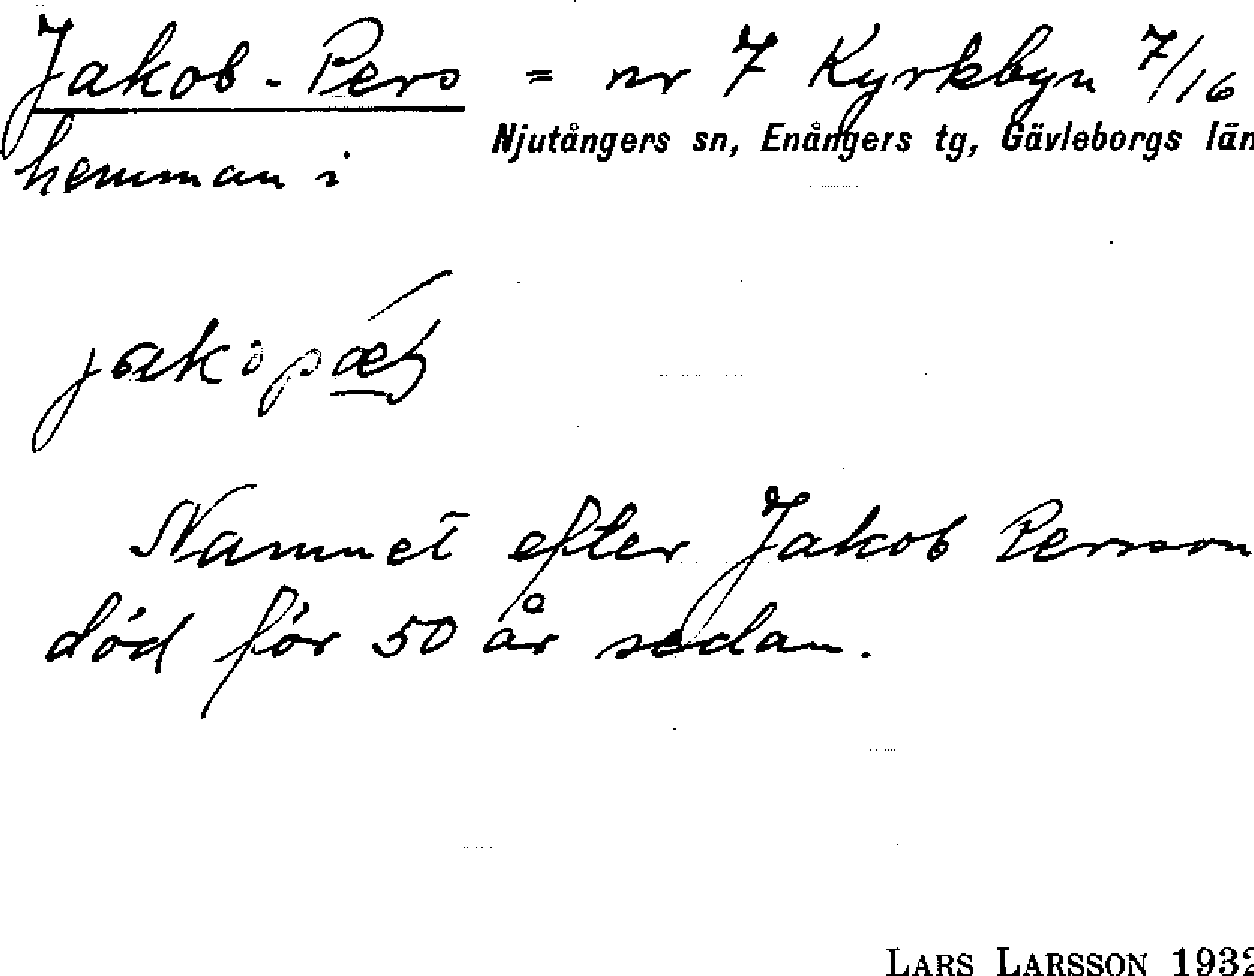 Jakob-Pers = nr 7 Kyrkbyn 7/16
Njutångers sn, Enångers tg, Gävleborgs län
hemman i
Namnet efter Jakob Persson
död för 50 år sedan.
LARS LARSSON 1932